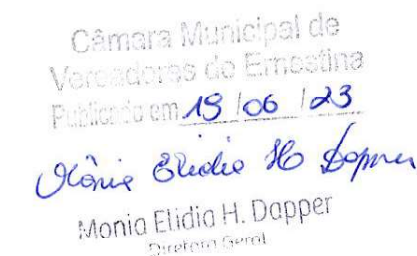 Câmara Municipal de
Vereadores de Ernestina
Publicado em 19/06/23
Mônia Elidia H Dapper
Monia Elidia H. Dapper
Diretora Geral